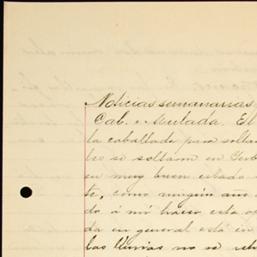 Noticias semanarias
Cab. e Mulada. El
la caballada para solta
se soltaron en
en muy buen estado
te, como ningun ano
do á mi hacer esta
da en general está en
las lluvias no se